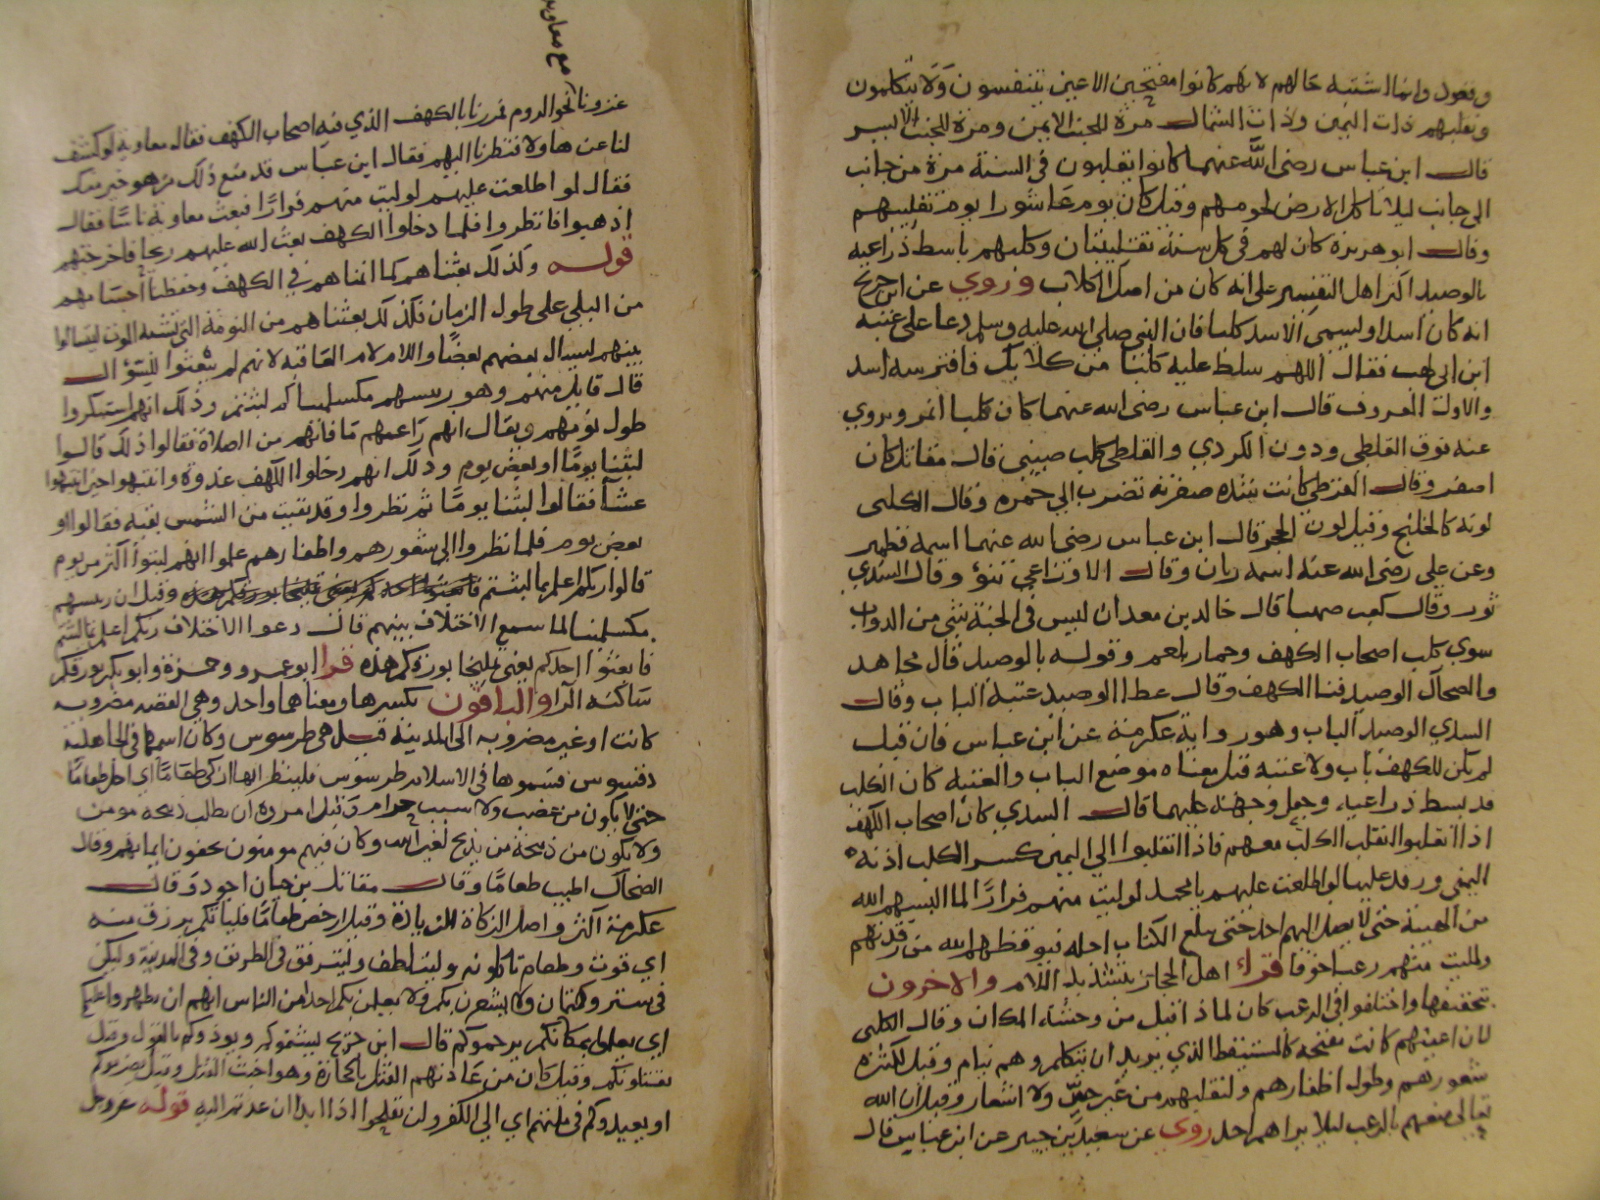 وقعود وانما اشتبه حالهم لانهم كانوا مفتحين الاعين يتنفسون ولا يتكلمون
ونقلبهم ذات اليمين وذات الشمال مرة للجنب الايمن ومرة للجنب الايسر
قال ابن عباس رضي الله عنهما كانوا يقلبون في السنة مرة من جانب
الى جانب ليلا تاكل الارض لحومهم وقيل كان يوم عاشورا يوم تقليبهم
وقال ابو هريرة كان لهم في كل سنة تقليبتان وكلبهم باسط ذراعيه
بالوصيد اكثر اهل التفسير على انه كان من اصل الكلاب وروي عن ابن جريج
انه كان اسدا ويسمى الاسد كلبا فان النبي صلى الله عليه وسلم دعا على عتبة
ابن ابي لهب فقال اللهم سلط عليه كلبا من كلابك فافترسه اسد
والاول المعروف قال ابن عباس رضي الله عنهما كان كلبا انمر ويروى
عنه فوق القلطي ودون الكردي والقلطي كلب صيني قال مقاتل كان
اصفر وقال القرظي كانت شده صفرته تضرب الى حمره وقال الكلبي
لونه كالخلنج وقيل لون الحجر قال ابن عباس رضي الله عنهما اسمه قطمير
وعن علي رضي الله عنه اسمه ريان وقال الاوزاعي نتوؤ وقال السدي
ثور وقال كعب صهبا قال خالد بن معدان ليس في الجنة شي من الدواب
سوى كلب اصحاب الكهف وحمار بلعم وقوله بالوصيد قال مجاهد
والضحاك الوصيد فنا الكهف وقال عطا الوصيد عتبة الباب وقال
السدي الوصيد الباب وهو رواية عكرمة عن ابن عباس فان قيل
لم يكن للكهف باب ولا عتبه قيل معناه موضع الباب والعتبه كان الكلب
قد بسط ذراعيه وجعل وجهه عليهما قال السدي كان اصحاب الكهف
اذا انقلبوا انقلب الكلب معهم فاذا انقلبوا الى اليمين كسر الكلب اذنه
اليمنى ورقد عليها لو اطلعت عليهم يا محمد لوليت منهم فرارا لما البسهم الله
من الهيبة حتى لا يصل اليهم احد حتى يبلغ الكتاب اجله فيوقظهم الله من رقدتهم
ولملئت منهم رعبا خوفا قراء اهل الحجاز بتشديد اللام والاخرون
بتخفيفها واختلفوا في الرعب كان لماذا قيل من وحشة المكان وقال الكلبي
لان اعينهم كانت مفتحه كالمستيقظ الذي يريد ان يتكلم وهم نيام وقيل لكثرة
شعورهم وطول اظفارهم ولتقلبهم من غير حس ولا اشعار وقيل ان الله
تعالى منعهم بالرعب ليلا يراهم احد روي عن سعيد بن جبير عن ابن عباس قال
مع معاوية
غزونا نحو الروم فمررنا بالكهف الذي فيه اصحاب الكهف فقال معاوية لو كشف
لنا عن هاولا فنظرنا اليهم فقال ابن عباس قد منع ذلك من هو خير منك
فقال لو اطلعت عليهم لوليت منهم فرارا فبعث معاوية ناسا فقال
اذهبوا فانظروا فلما دخلوا الكهف بعث الله عليهم ريحا فاخرجتهم
قوله وكذلك بعثناهم كما انمناهم في الكهف وحفظنا اجسامهم
من البلى على طول الزمان فكذلك بعثناهم من النومة التي تشبه الموت ليتسالوا
بينهم ليسال بعضهم بعضا واللام لام العاقبه لانهم لم يبعثوا للسؤال
قال قايل منهم وهو رييسهم مكسلمينا كم لبثتم وذلك انهم استنكروا
طول نومهم ويقال انهم راعهم ما فاتهم من الصلاة فقالوا ذلك قالوا
لبثنا يوما او بعض يوم وذلك انهم دخلوا الكهف غدوة وانتبهوا حين انتبهوا
عشيا فقالوا لبثنا يوما ثم نظروا وقد بقيت من الشمس بقيه فقالوا او
بعض يوم فلما نظروا الى شعورهم واظفارهم علموا انهم لبثوا اكثر من يوم
قالوا ربكم اعلم بما لبثتم وقيل ان رييسهم
مكسلمينا لما سمع الاختلاف بينهم قال دعوا الاختلاف ربكم اعلم بما لبثتم
فابعثوا احدكم يعني يمليخا بورقكم هذه قرا ابو عمرو وحمزة وابو بكر بورقكم
ساكنه الرا والباقون بكسرها ومعناهما واحد وهي الفضه مضروبه
كانت او غير مضروبه الى المدينة قيل هي طرسوس وكان اسمها في الجاهلية
دفسوس فسموها في الاسلام طرسوس فلينظر ايها ازكى طعاما اي احل طعاما
حتى لا يكون من غصب ولا سبب حرام وقيل امروه ان يطلب ذبيحة مومن
ولا يكون من ذبيحة من يذبح لغير الله وكان فيهم مومنون يخفون ايمانهم وقال
الضحاك اطيب طعاما وقال مقاتل بن حيان اجود وقال
عكرمة اكثر واصل الزكاة الزيادة وقيل ارخص طعاما فلياتكم برزق منه
اي قوت وطعام تاكلونه وليتلطف وليترفق في الطريق وفي المدينة وليكن
في ستر وكتمان ولا يشعرن بكم ولا يعلمن بكم احدا من الناس انهم ان يظهروا عليكم
اي يعلموا بمكانكم يرجموكم قال ابن جريج يشتموكم ويوذوكم بالقول وقيل
يقتلونكم وقيل كان من عادتهم القتل بالحجارة وهو اخبث القتل وقيل يضربوكم
او يعيدوكم في ملتهم اي الى الكفر ولن تفلحوا اذا ابدا ان عدتم اليه قوله عز وجل